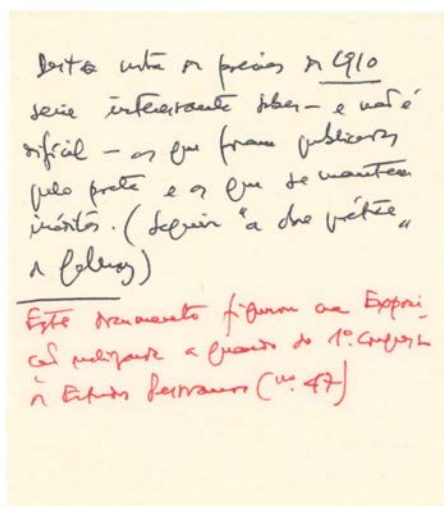 Desta lista de poesias de 1910
seria interessante saber – e não é
difícil – as que foram publicadas
pelo poeta e as que se mantêm
inéditas. (Seguir "a obra poética"
de Galhoz)
Este documento figurou na Exposi-
ção realizada a quando do 1º. Congresso
de Estudos Pessoanos (nº. 47)